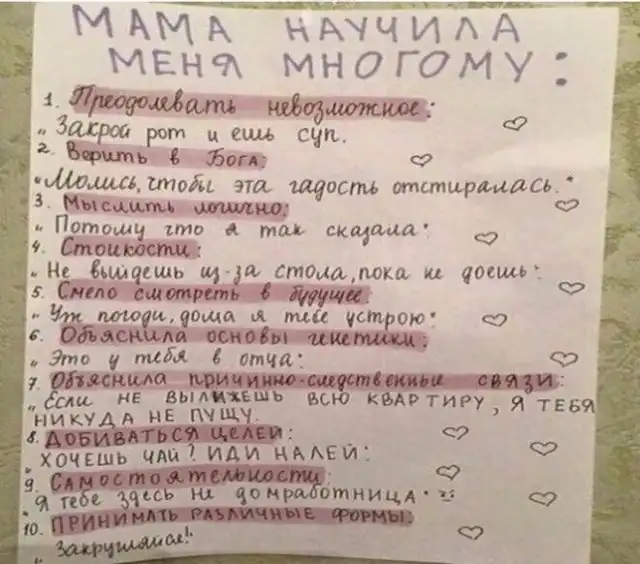 МАМА НАУЧИЛА
МЕНЯ МНОГОМУ:
1. Преодолевать невозможное:
„Закрой рот и ешь суп.
2. Верить в БОГА:
„Молись, чтобы эта гадость отстиралась."
3. Мыслить логично:
„Потому что я так сказала"
4. Стойкости:
„Не выйдешь из-за стола, пока не доешь"
5. Смело смотреть в будущее:
„Уж погоди, дома я тебе устрою"
6. Объяснила основы генетики:
„Это у тебя в отца"
7. Объяснила причинно-следственные связи:
„Если НЕ ВЫЛИЖЕШЬ ВСЮ КВАРТИРУ, Я ТЕБЯ
НИКУДА НЕ ПУЩУ.
8. ДОБИВАТЬСЯ ЦЕЛЕЙ:
„ХОЧЕШЬ ЧАЙ? ИДИ НАЛЕЙ"
9. САМОСТОЯТЕЛЬНОСТИ:
"Я тебе здесь не домработница"
10. ПРИНИМАТЬ РАЗЛИЧНЫЕ ФОРМЫ:
„Закругляйся!"